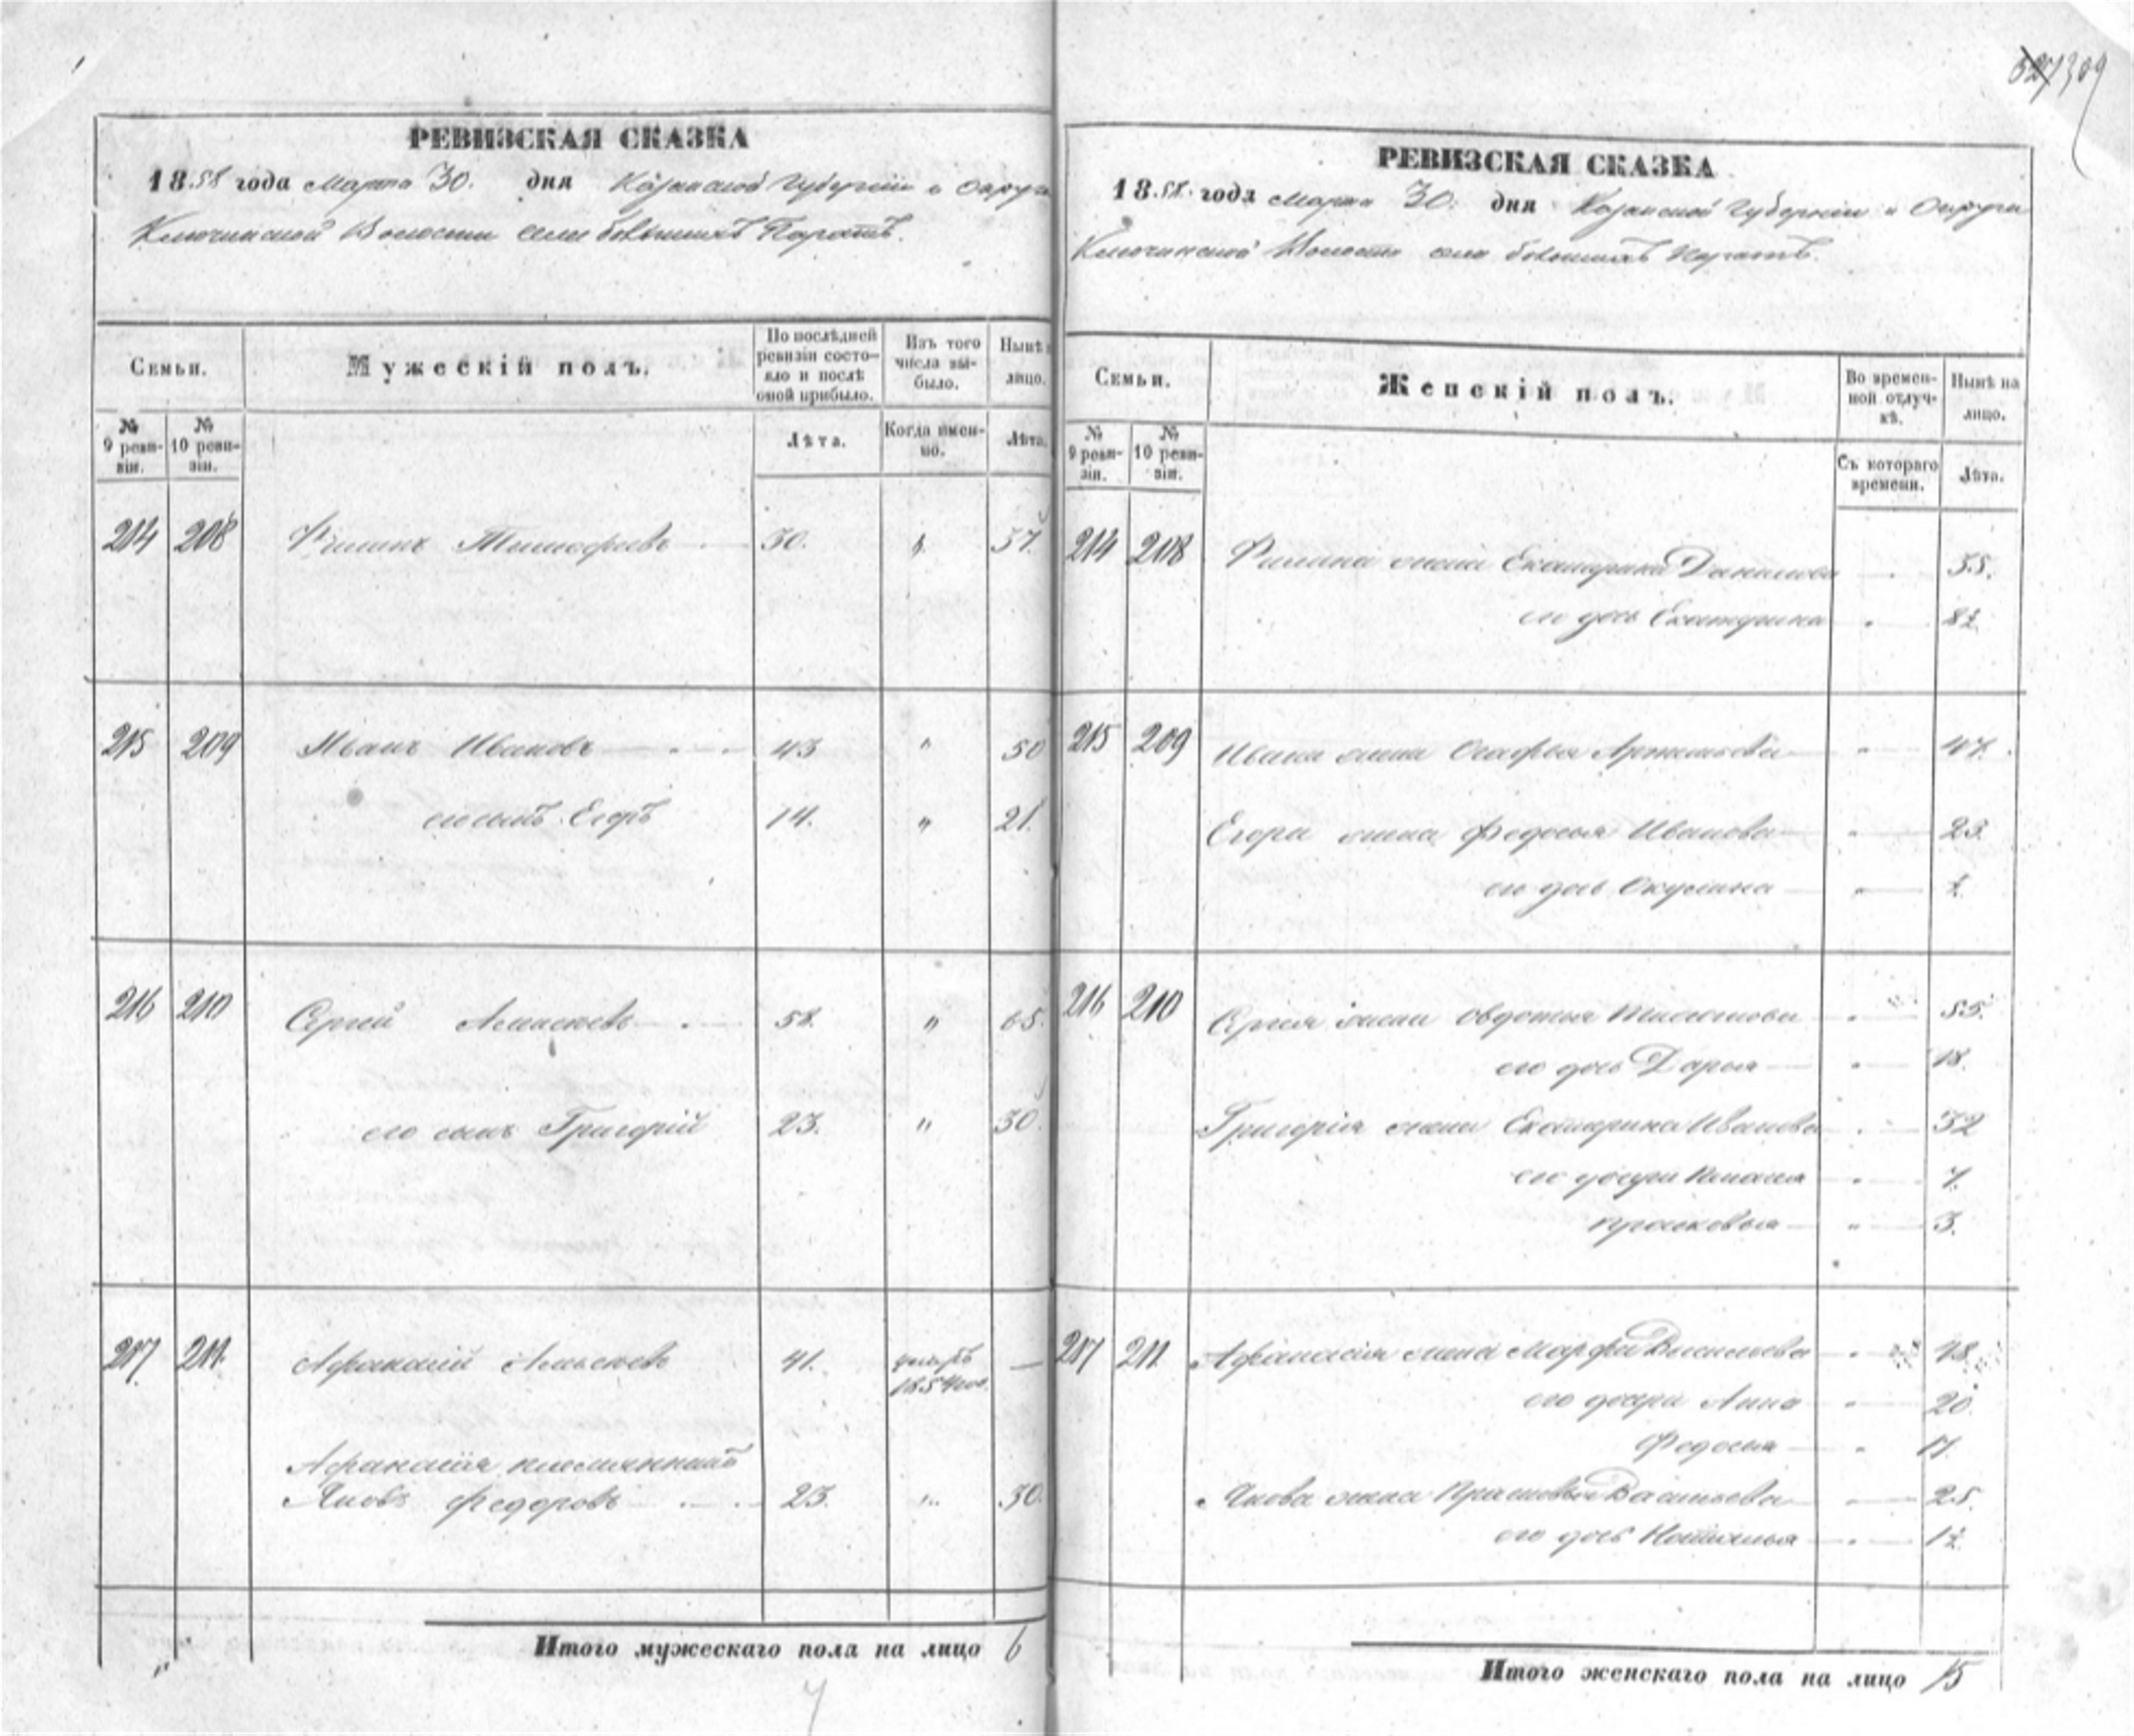 327 309
РЕВИЗСКАЯ СКАЗКА
1858 года Марта 30. дня Казанской Губерніи и Округа
Ключинской Волости села большихъ Паратъ.
Семьи.
Мужескій полъ.
По послѣдней ревизіи состо-яло и послѣ оной прибыло.
Изъ того числа вы-было.
Нынѣ на лицо.
№ 9 реви-зіи.
№ 10 реви-зіи.
Лѣта.
Когда имен-но.
Лѣта.
214 208 Филипъ Тимофеевъ 30. " 37.
215 209 Иванъ Ивановъ 43 " 50
его сынъ Егоръ 14. " 21.
216 210 Сергей Алексѣевъ 58. " 65.
его сынъ Григорій 23. " 30.
217 211. Афанасій Алексѣевъ 41. умеръ 1854 —
Афанасія племянникъ
Яковъ Федоровъ 23. " 30.
Итого мужескаго пола на лицо 6
РЕВИЗСКАЯ СКАЗКА
1858. года Марта 30. дня Казанской Губерніи и Округа
Ключинской Волости села большихъ Паратъ.
Семьи.
Женскій полъ.
Во времен-ной отлуч-кѣ.
Нынѣ на лицо.
№ 9 реви-зіи.
№ 10 реви-зіи.
Съ котораго времени.
Лѣта.
214 208 Филипа жена Екатерина Данилова 35.
его дочь Екатерина
215 209 Ивана жена Агафья " 47.
Егора жена Федосья Иванова " 23.
его дочь Окулина "
216 210 Сергея жена Овдотья " 55.
его дочь Дарья " 18.
Григорія жена Екатерина Иванова " 32
его дочери " 7.
Прасковья " 3.
217 211. Афанасія жена Марфа Васильева " 48.
его дочери Анна " 20
Федосья " 17.
Якова жена Прасковья Васильева 25.
его дочь Наталья "
Итого женскаго пола на лицо 15